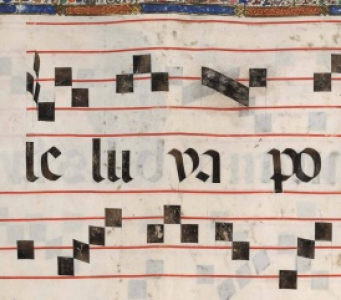 le lu ya po